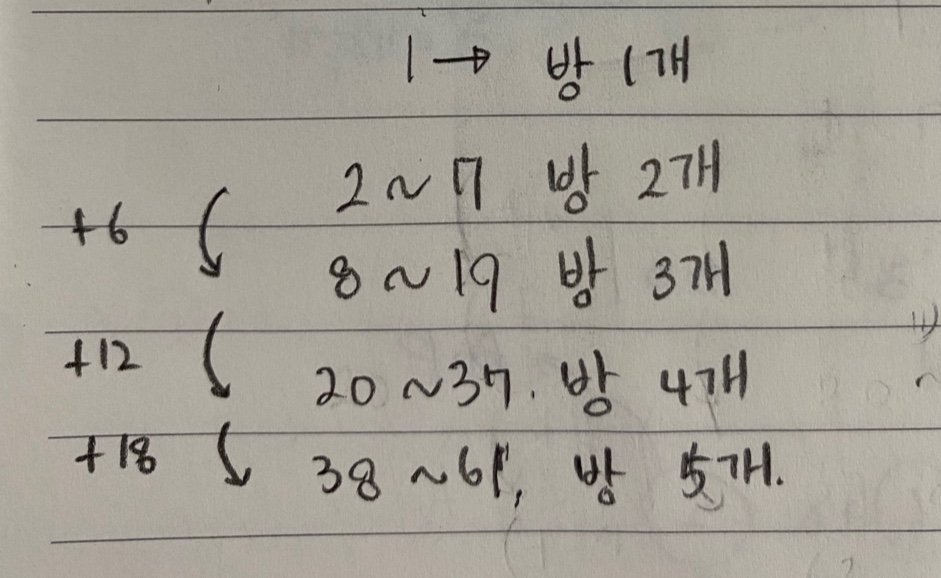 1 → 방 1개
2 ~ 7 방 2개
+6
8 ~ 19 방 3개
+12
20 ~ 37. 방 4개
+18
38 ~ 61, 방 5개.